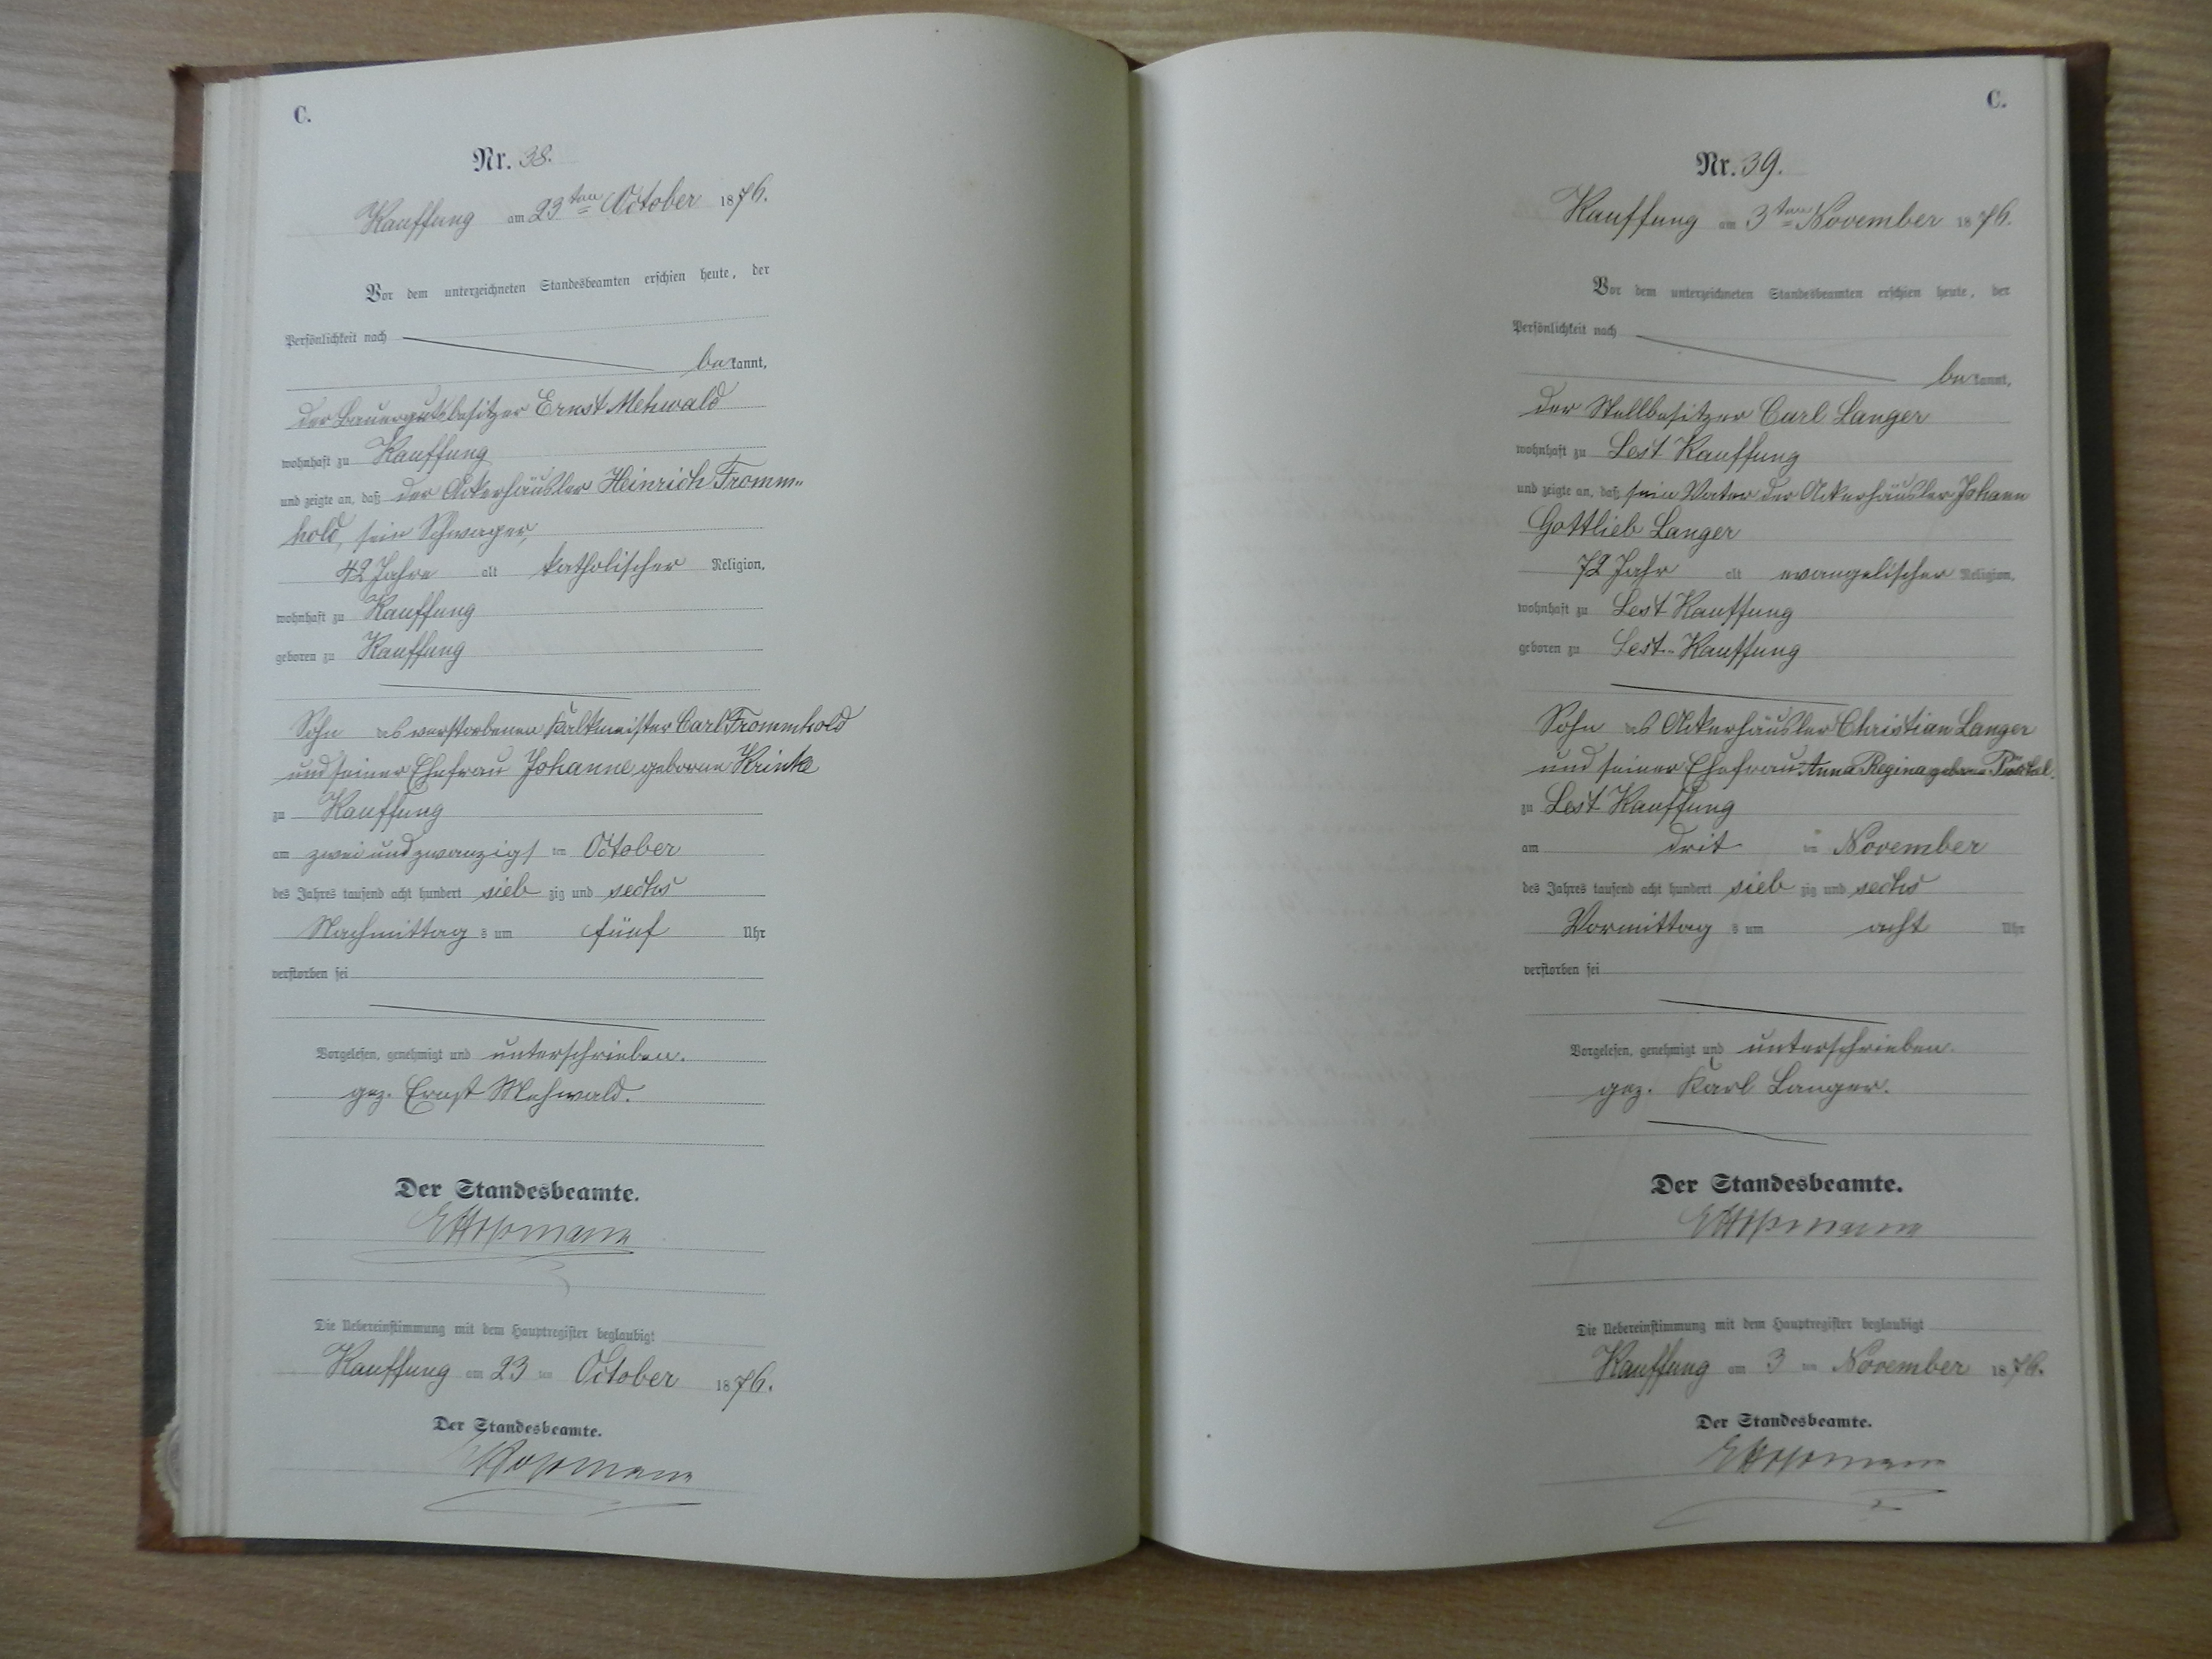 C.
Nr. 38.
Kauffung am 23ten October 1876.
Vor dem unterzeichneten Standesbeamten erschien heute, der
Persönlichkeit nach
bekannt,
der Bauergutsbesitzer Ernst Mehwald
wohnhaft zu Kauffung
und zeigte an, daß der Ackerhäusler Heinrich Fromm-
hold, sein Schwager,
42 Jahre alt katholischer Religion,
wohnhaft zu Kauffung
geboren zu Kauffung
Sohn des verstorbenen Kalkmeister Carl Frommhold
und seiner Ehefrau Johanne geborene Krinke
zu Kauffung
am zwei und zwanzigsten October
des Jahres tausend acht hundert siebzig und sechs
Nachmittags um fünf Uhr
verstorben sei
Vorgelesen, genehmigt und unterschrieben.
gez. Ernst Mehwald.
Der Standesbeamte.
Die Uebereinstimmung mit dem Hauptregister beglaubigt
Kauffung am 23ten October 1876.
Der Standesbeamte.
C.
Nr. 39.
Kauffung am 3ten November 1876.
Vor dem unterzeichneten Standesbeamten erschien heute, der
Persönlichkeit nach
bekannt,
der Stellbesitzer Carl Langer
wohnhaft zu Lest Kauffung
und zeigte an, daß sein Vater der Ackerhäusler Johann
Gottlieb Langer
72 Jahr alt evangelischer Religion,
wohnhaft zu Lest Kauffung
geboren zu Lest-Kauffung
Sohn des Ackerhäusler Christian Langer
und seiner Ehefrau Anna Regina geborene
zu Lest Kauffung
am dritten November
des Jahres tausend acht hundert siebzig und sechs
Vormittags um acht Uhr
verstorben sei
Vorgelesen, genehmigt und unterschrieben.
gez. Karl Langer.
Der Standesbeamte.
Die Uebereinstimmung mit dem Hauptregister beglaubigt
Kauffung am 3ten November 1876.
Der Standesbeamte.